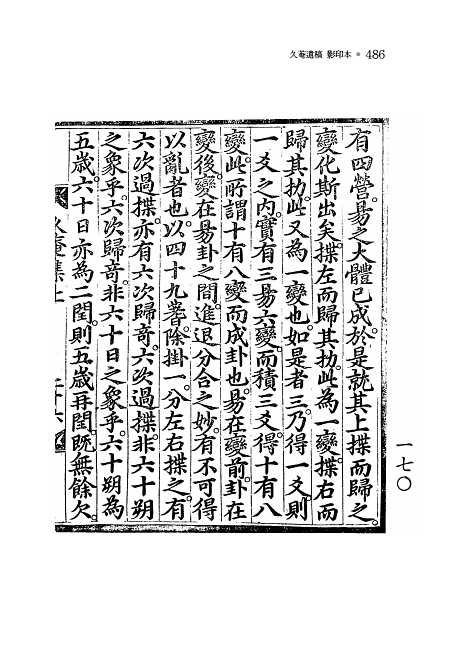 久菴遺稿 影印本 • 486
有四營。易之大體已成。於是就其上揲而歸之。
變化斯出矣。揲左而歸其扐。此為一變。揲右而
歸其扐。此又為一變也。如是者三。乃得一爻。則
一爻之內。實有三易六變。而積三爻。得十有八
變。此所謂十有八變而成卦也。易在變前。卦在
變後。變在易卦之間。進退分合之妙。有不可得
以亂者也。以四十九蓍。除掛一。分左右揲之。有
六次過揲。亦有六次歸奇。六次過揲。非六十朔
之象乎。六次歸奇。非六十日之象乎。六十朔為
五歲。六十日亦為二閏。則五歲再閏。旣無餘欠。
久菴集上
二十六
一七〇